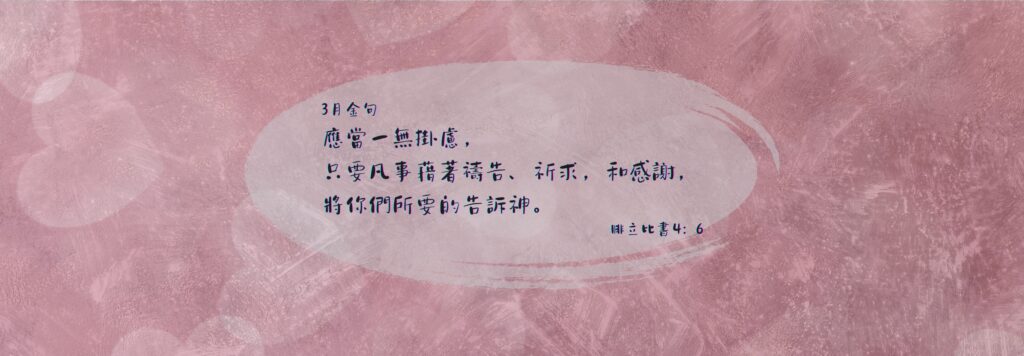 3月金句
應當一無掛慮，
只要凡事藉著禱告、祈求，和感謝，
將你們所要的告訴神。
腓立比書4：6